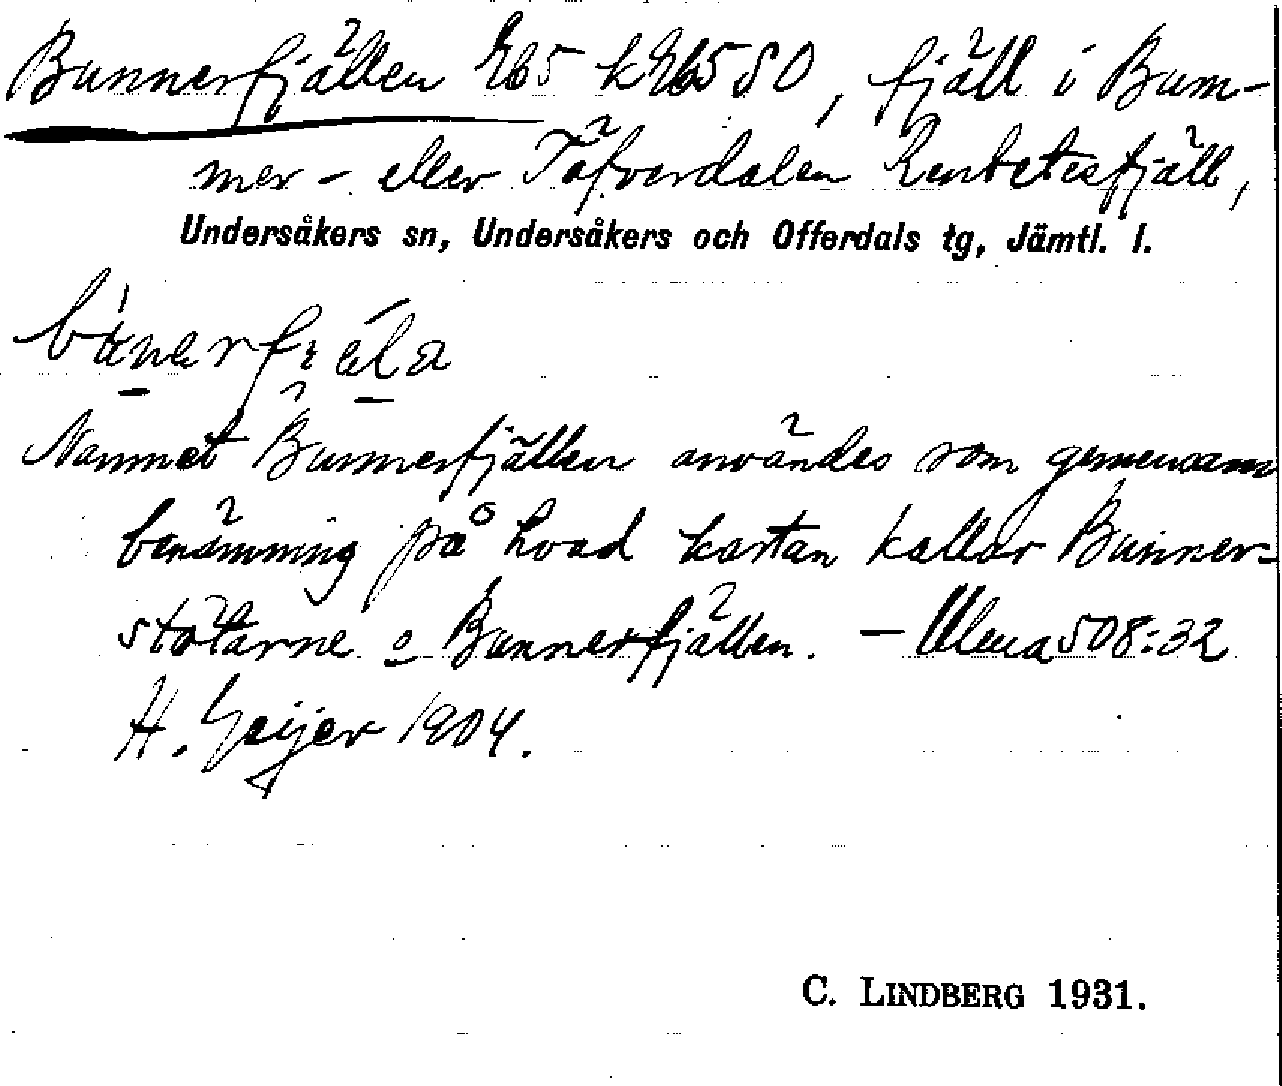 Bunnerfjällen Eb5 k Eb5 SO, fjäll i Bum-
mer- eller Täfverdalen Renbetesfjäll,
Undersåkers sn, Undersåkers och Offerdals tg, Jämtl. l.
Namnet Bunnerfjällen användes som gemensam
benämning på hvad kartan kallar Bunner-
stötarne o Bunnerfjällen. – Ulma 508:32
H. Geijer 1904.
C. LINDBERG 1931.